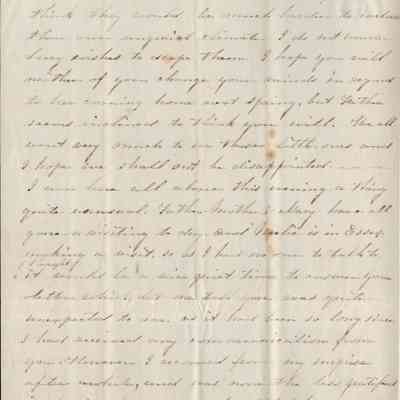 think they would, be much harder to endure
than our tropical climate. I do not wonder
Lucy wishes to escape them. I hope you will
neither of you change your minds in regard
to her coming home next spring, but Father
seems inclined to think you will. We all
want very much to see those little ones and
I hope we shall not be disappointed.
I am here all alone this evening a thing
quite unusual. Father Mother & Mary have all
gone a visiting to day and is in Essex
making a visit, so as I had no one to talk to
I thought
it would be a nice quiet time to answer your
letter which, let me tell you, was quite
unexpected to me, as it had been so long since
I had received any communication from
you. However I recovered from my surprise
after awhile, and was none the less gratified